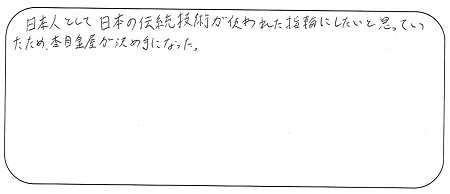 日本人として日本の伝統技術が使われた指輪にしたいと思ってい
たため、杢目金屋が決め手になった。